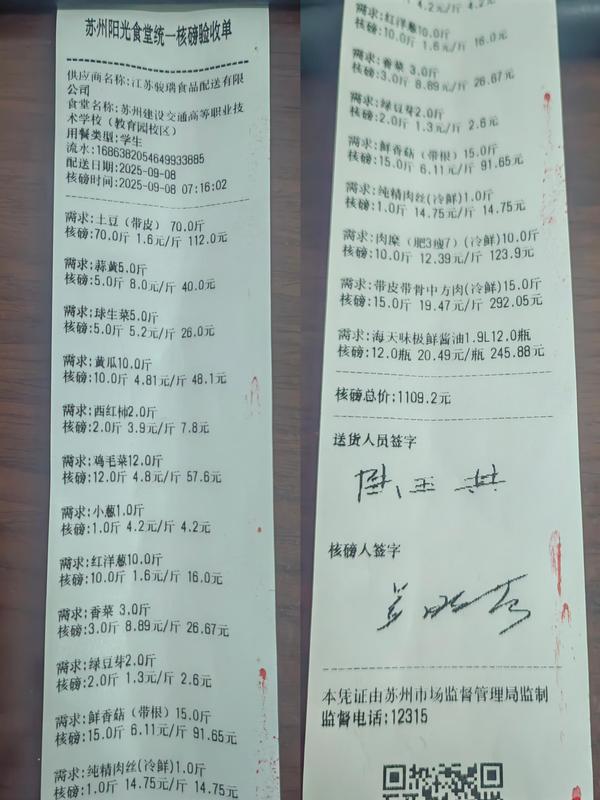 苏州阳光食堂统一核磅验收单
供应商名称:江苏骏瑞食品配送有限
公司
食堂名称:苏州建设交通高等职业技
术学校（教育园校区）
用餐类型:学生
流水:1686382054649933885
配送日期:2025-09-08
核磅时间:2025-09-08 07:16:02
需求:土豆（带皮） 70.0斤
核磅:70.0斤 1.6元/斤 112.0元
需求:蒜黄5.0斤
核磅:5.0斤 8.0元/斤 40.0元
需求:球生菜5.0斤
核磅:5.0斤 5.2元/斤 26.0元
需求:黄瓜10.0斤
核磅:10.0斤 4.81元/斤 48.1元
需求:西红柿2.0斤
核磅:2.0斤 3.9元/斤 7.8元
需求:鸡毛菜12.0斤
核磅:12.0斤 4.8元/斤 57.6元
需求:小葱1.0斤
核磅:1.0斤 4.2元/斤 4.2元
需求:红洋葱10.0斤
核磅:10.0斤 1.6元/斤 16.0元
需求:香菜 3.0斤
核磅:3.0斤 8.89元/斤 26.67元
需求:绿豆芽2.0斤
核磅:2.0斤 1.3元/斤 2.6元
需求:鲜香菇（带根）15.0斤
核磅:15.0斤 6.11元/斤 91.65元
需求:纯精肉丝(冷鲜)1.0斤
核磅:1.0斤 14.75元/斤 14.75元
4.2元/斤 4.2元
需求:红洋葱10.0斤
核磅:10.0斤 1.6元/斤 16.0元
需求:香菜 3.0斤
核磅:3.0斤 8.89元/斤 26.67元
需求:绿豆芽2.0斤
核磅:2.0斤 1.3元/斤 2.6元
需求:鲜香菇（带根）15.0斤
核磅:15.0斤 6.11元/斤 91.65元
需求:纯精肉丝(冷鲜)1.0斤
核磅:1.0斤 14.75元/斤 14.75元
需求:肉糜（肥3瘦7）(冷鲜)10.0斤
核磅:10.0斤 12.39元/斤 123.9元
需求:带皮带骨中方肉(冷鲜)15.0斤
核磅:15.0斤 19.47元/斤 292.05元
需求:海天味极鲜酱油1.9L12.0瓶
核磅:12.0瓶 20.49元/瓶 245.88元
核磅总价:1109.2元
送货人员签字
核磅人签字
本凭证由苏州市场监督管理局监制
监督电话:12315